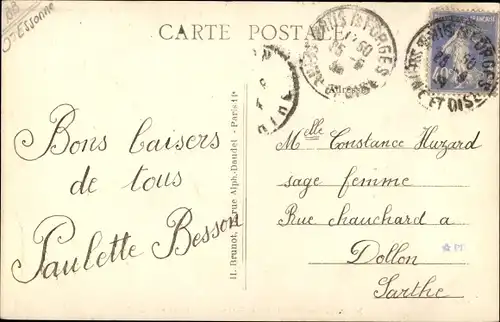 08
Essonne
CARTE POSTALE
BRIIS Ss FORGES
ET OISE
Adresse
Bons baisers
de tous
Paulette Besson
H. Brunot, rue Alph.-Daudet - Paris
Melle Constance Hazard
sage femme
Rue chauchard a
Dollon
Sarthe